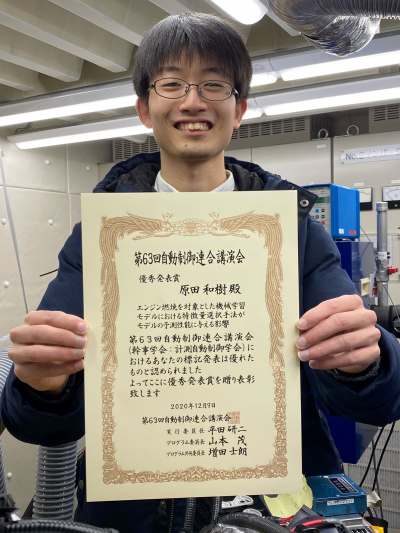 第63回自動制御連合講演会
優秀発表賞
原田 和樹 殿
エンジン燃焼を対象とした機械学習
モデルにおける特徴量選択手法が
モデルの予測性能に与える影響
第63回自動制御連合講演会
(幹事学会:計測自動制御学会)に
おけるあなたの標記発表は優れた
ものと認められました
よってここに優秀発表賞を贈り表彰
致します
2020年12月9日
第63回自動制御連合講演会
実行委員長 平田 研二
プログラム委員長 山本 茂
プログラム共同委員長 増田 士朗